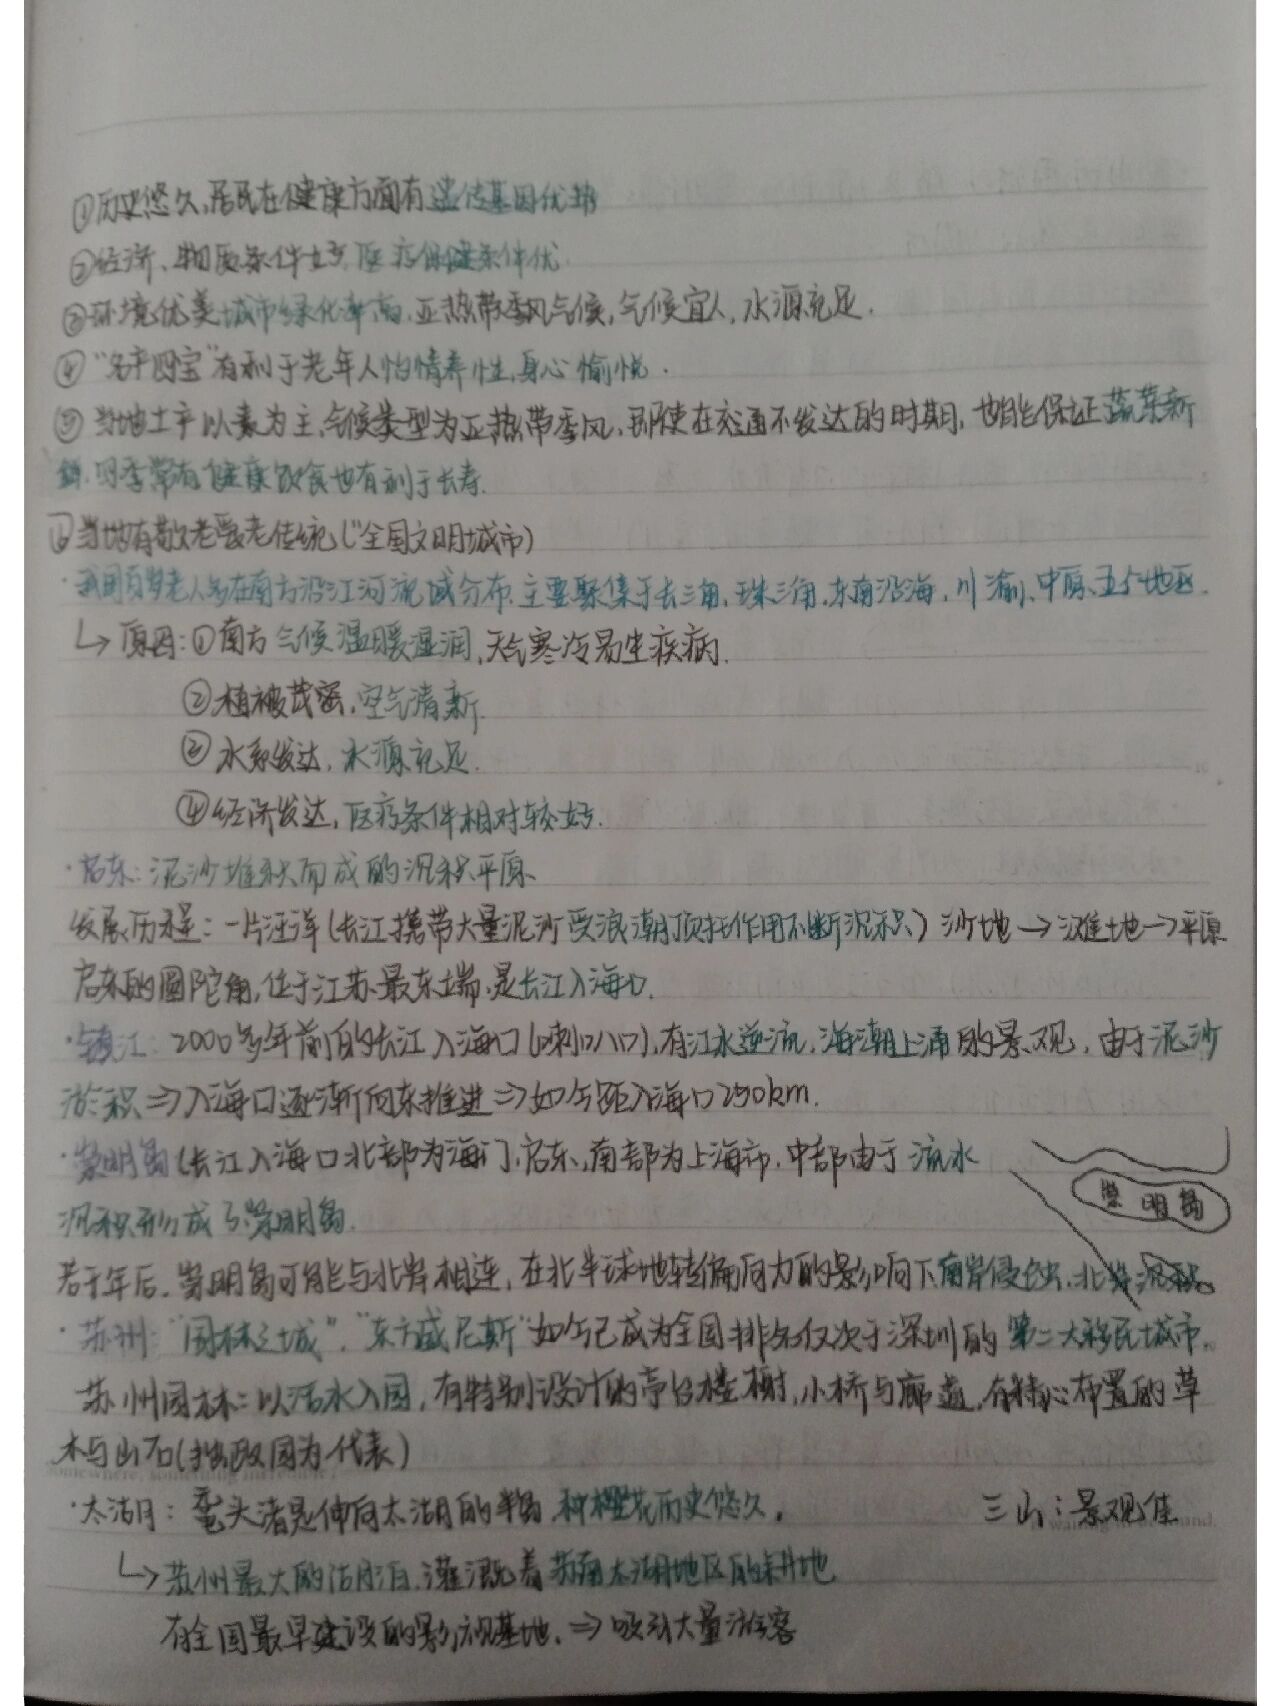 ①历史悠久,居民在健康方面有遗传基因优势
②经济、物质条件好,医疗保健条件优.
③环境优美城市绿化率高,亚热带季风气候,气候宜人,水源充足.
④“名产四宝”有利于老年人怡情养性,身心愉悦.
⑤当地土产以素为主,气候类型为亚热带季风,即使在交通不发达的时期,也能保证蔬菜新
鲜.四季常有健康饮食也有利于长寿.
⑥当地有敬老爱老传统(“全国文明城市)
·我国百岁老人多在南方沿江河流域分布.主要聚集于长三角.珠三角.东南沿海,川渝,中原.五个地区.
↳原因:①南方气候温暖湿润,天气寒冷易生疾病.
②植被茂密,空气清新.
③水系发达,水源充足.
④经济发达,医疗条件相对较好.
·启东:泥沙堆积而成的沉积平原.
发展历程:一片汪洋(长江携带大量泥沙受浪潮顶托作用不断沉积)沙地→滩地→平原
启东的圆陀角,位于江苏最东端,是长江入海口.
·镇江:2000多年前的长江入海口(喇叭口),有江水逆流,海潮上涌的景观,由于泥沙
淤积⇒入海口逐渐向东推进⇒如今距入海口250km.
·崇明岛(长江入海口北部为海门,启东,南部为上海市,中部由于流水
沉积形成了崇明岛.
崇明岛
若干年后,崇明岛可能与北岸相连,在北半球地转偏向力的影响下南岸侵蚀.北岸沉积.
·苏州:“园林之城”.“东方威尼斯”如今已成为全国排名仅次于深圳的第二大移民城市.
苏州园林:以活水入园,有特别设计的亭台楼榭,小桥与廊道,有精心布置的草
木与山石(拙政园为代表)
·太湖:鼋头渚是伸向太湖的半岛.种樱花历史悠久. 三山:景观佳
↳苏州最大的湖泊,灌溉着苏南太湖地区的耕地
有全国最早建设的影视基地.⇒吸引大量游客